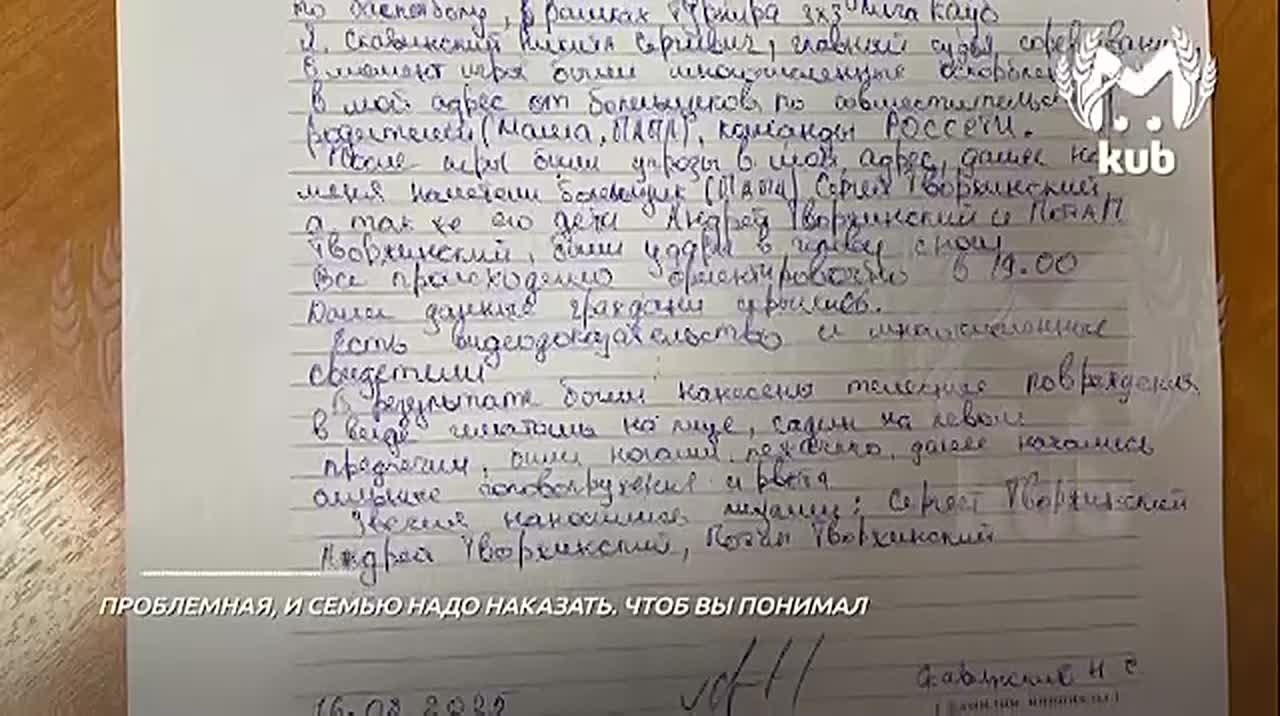 по баскетболу, в рамках турнира 3х3 Лига Каус
Я, Славянский Никита Сергеевич, главный судья соревнований,
В момент игры были многочисленные оскорблен
в мой адрес от болельщиков, по совместительс
родителей (мама, ПАПА), команды РОССЕТИ.
После игры были угрозы в мой адрес, далее на
меня налетели болельщик (ПАПА) Сергей Творжинский,
а так же его дети Андрей Творжинский и ПОТАП
Творжинский, были удары в голову
Все происходило ориентировочно в 19.00
Данные граждани скрылись.
Есть видеодоказательство и многочисленные
свидетели
В результате были нанесены телесные повреждения
в виде гематомы на лице, садин на левом
предплечии, били ногами лежачего, далее начались
головокружения и рвота
Увечия наносились лицами: Сергей Творжинский
Андрей Творжинский, Потап Творжинский
16.08.2025
Славянский Н С
(фамилия, инициалы)
M
kub
ПРОБЛЕМНАЯ, И СЕМЬЮ НАДО НАКАЗАТЬ. ЧТОБ ВЫ ПОНИМАЛ